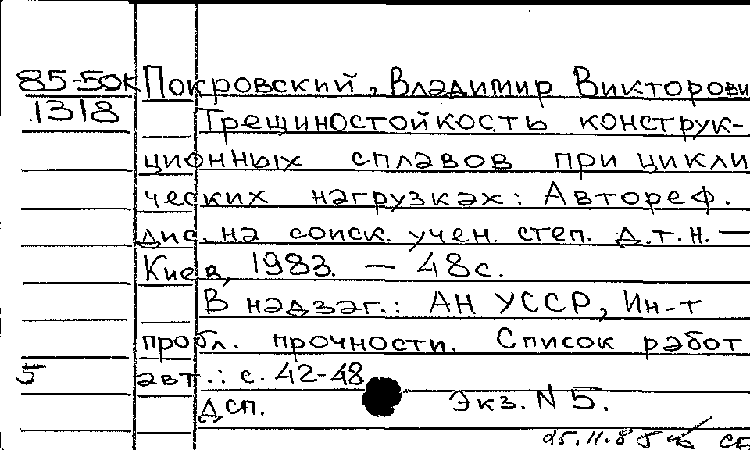 85-50к Покровский, Владимир Викторови
1318 Трещиностойкость конструк-
ционных сплавов при цикли
ческих нагрузках: Автореф.
дис. на соиск. учен. степ. д.т.н. —
Киев, 1983. — 48с.
В надзаг.: АН УССР, Ин-т
пробл. прочности. Список работ
5 авт.: с. 42-48
Дсп. Экз. N 5.
25.11.85